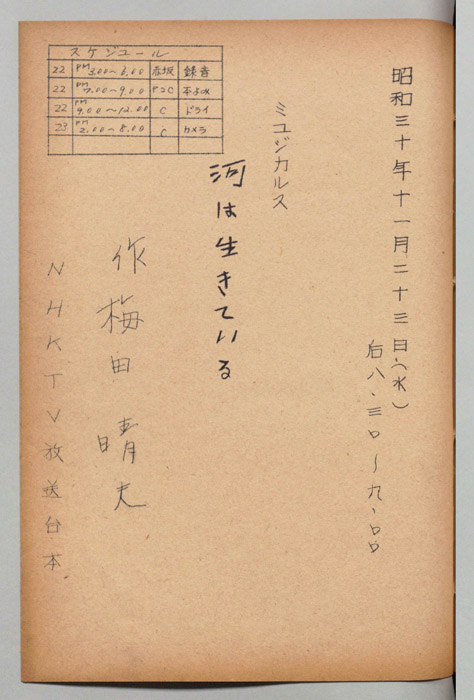 昭和三十年十一月二十三日(水)
后八・三〇〜九、〇〇
ミュジカルス
河は生きている
作 梅田晴夫
NHKTV放送台本
スケジュール
22 PM 3.00〜6.00 赤坂 録音
22 PM 7.00〜9.00 C 本よみ
22 PM 9.00〜12.00 C ドライ
23 PM 2.00〜8.00 C カメラ